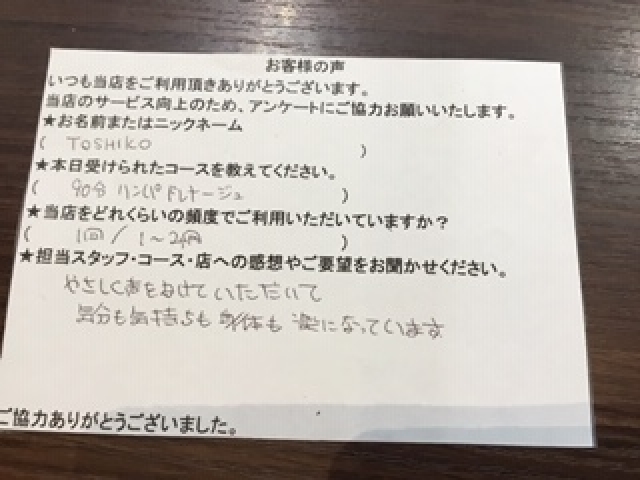 お客様の声
いつも当店をご利用頂きありがとうございます。
当店のサービス向上のため、アンケートにご協力お願いいたします。
★お名前またはニックネーム
( TOSHIKO )
★本日受けられたコースを教えてください。
( 90分 リンパドレナージュ )
★当店をどれくらいの頻度でご利用いただいていますか?
( 1回 / 1〜2ヶ月 )
★担当スタッフ・コース・店への感想やご要望をお聞かせください。
やさしく声をかけていただいて
気分も気持ちも身体も楽になっています
ご協力ありがとうございました。